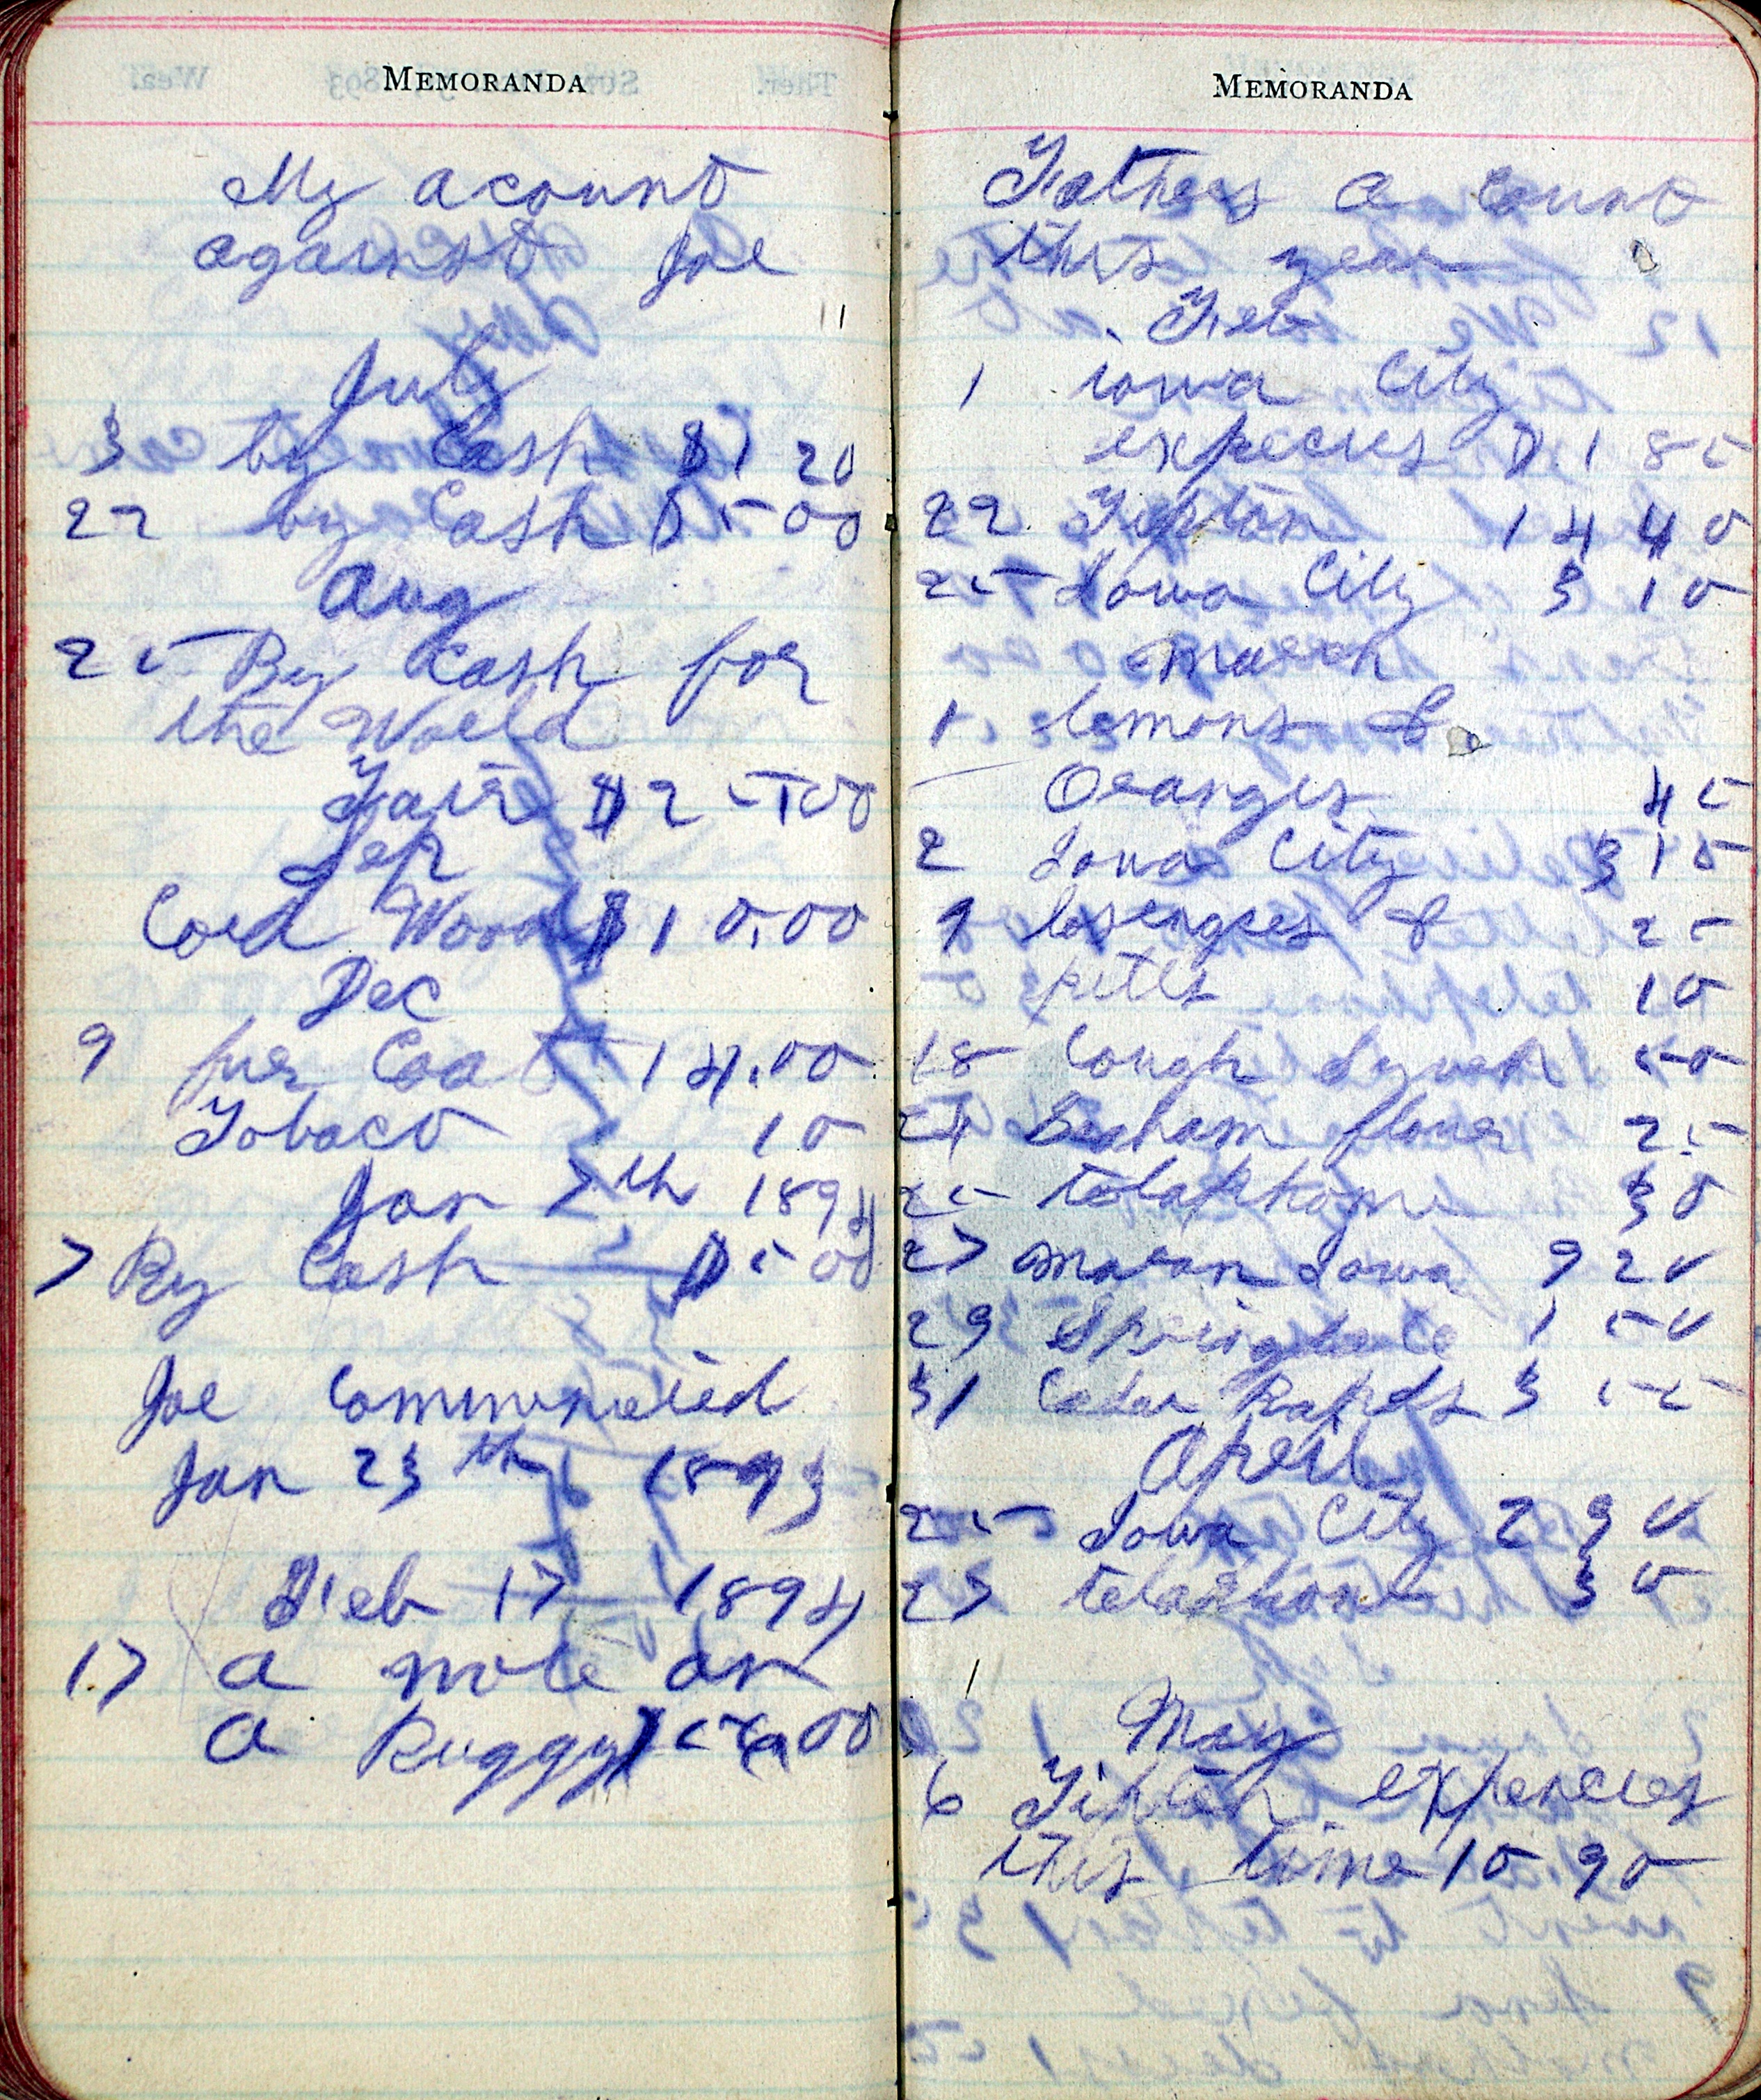 MEMORANDA
My acount
against Joe
July
3 by Cash $1 20
22 by Cash $5 00
Aug
25 By Cash for
the World
Faire $25 00
Sep
Cord Wood $10.00
Dec
9 fur Coat 14.00
Tobaco 10
Jan 7th 1894
7 By Cash $5 00
Joe Commenced
Jan 23th 1893
Feb 17 1894
17 a note on
a Buggy 00
MEMORANDA
Fathers a count
this year
Feb
1 iowa City
expeces $1 85
22 Tipton 14 40
25 Iowa City 3 10
March
1 lemons &
Oranges 45
2 Iowa City 3 15
9 losenges & 25
pills 10
18 Cough Syrup 50
24 flour 25
25 telaphone 30
27 Iowa 9 20
29 Springdale 1 50
31 Cedar Rapids 3 55
April
25 Iowa City 2 90
27 telaphone 30
May
6 Tipton expences
this time 10 90